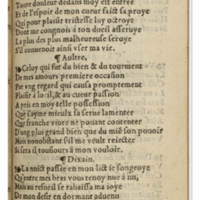 Toute douleur dedans moy est entrée
Et de l'espoir de mon cueur faict sa proye
Si que pour plaisir tristesse luy octroye
Dont me congnois à ton dueil asseruye
La plus des plus malheureuse seroye
S'il conuenoit ainsi vser ma vie.
¶ Aultre,
Celuy qui fut du bien & du tourment
De mes amours premiere occasion
Par vng regard qui causa promptement
Plaisir a l'œil, & au cueur passion
A pris en moy telle possession
Que s'ayme mieulx sa serue languir
Qu'entre mes bras vne aultre dominer
D'aultant plus grand bien que du mié son pouoir
Mon honnesteté ne me veult reiecter
Mais tousiours à mon vouloir.
¶ Dixain.
La nuict passée en mon lict ie songeoye
Qu'entre mes bras vous tenoye nu à nu,
Mais au resueil se rabaissa ma ioye
De mon desir en dormant aduenu